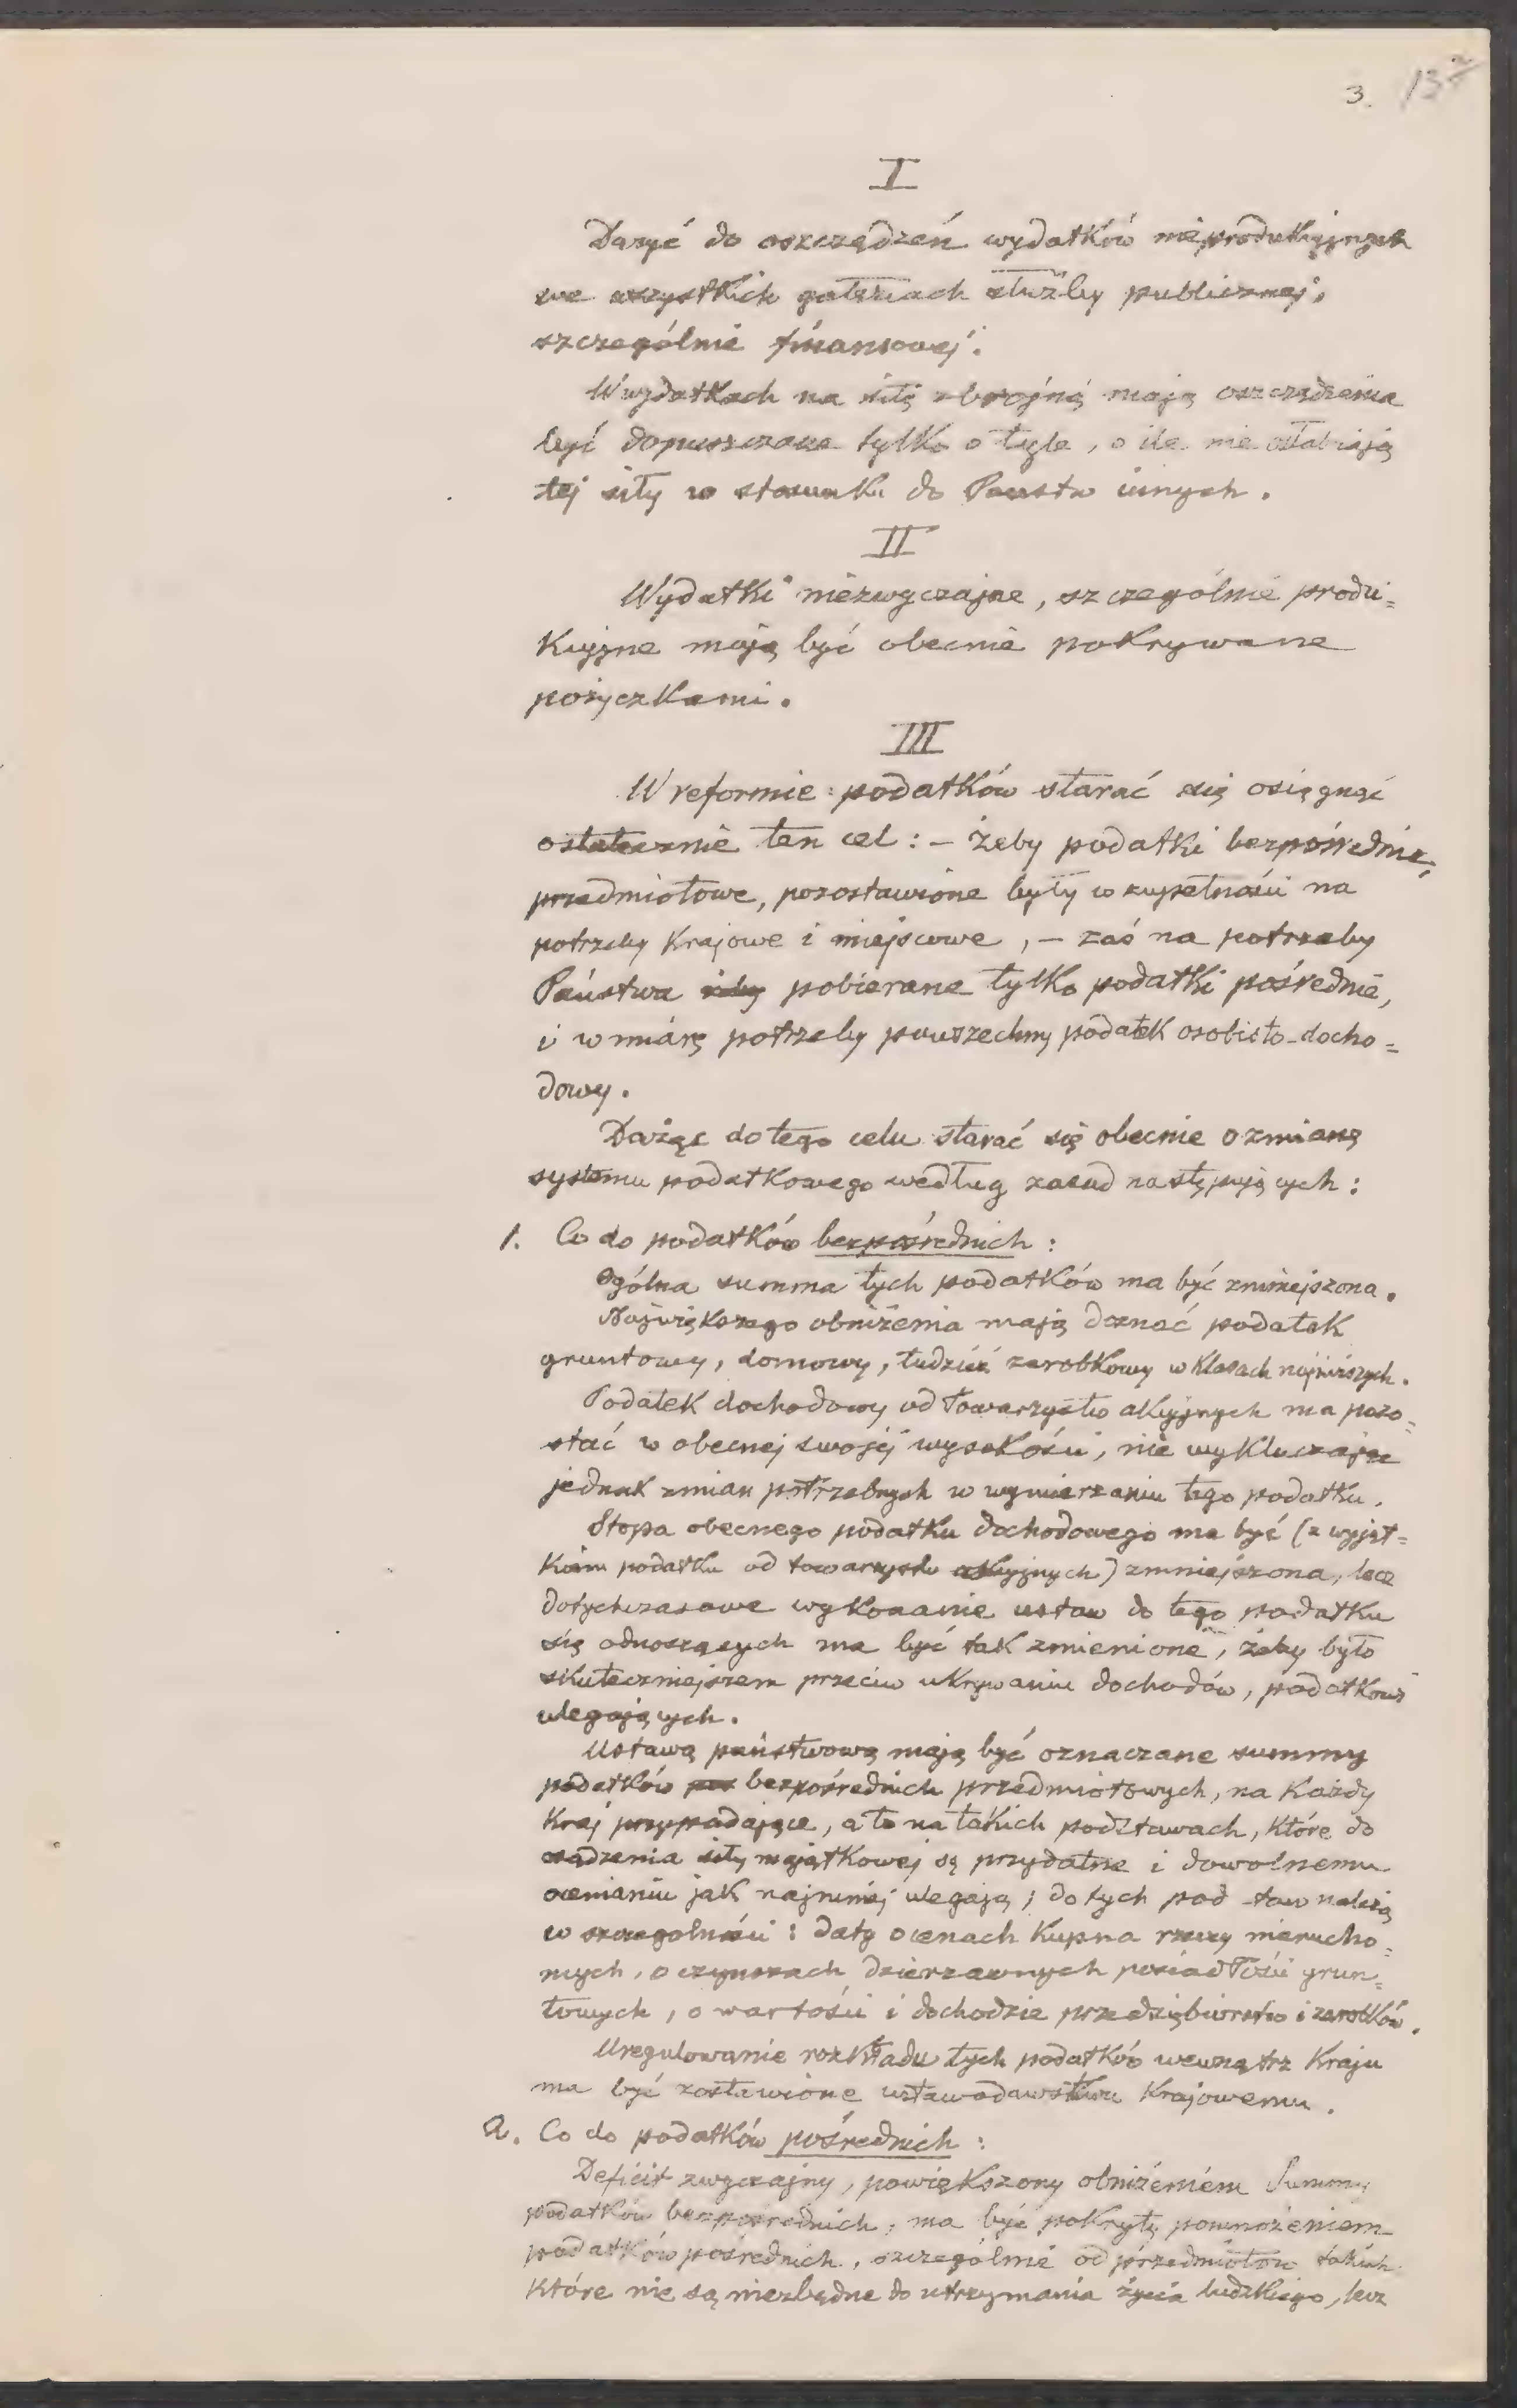 3. 13
I
Dążyć do oszczędzeń wydatków nieprodukcyjnych
we wszystkich gałęziach służby publicznej,
szczególnie finansowej.
W wydatkach na siłę zbrojną mają oszczędzenia
być dopuszczane tylko o tyle, o ile nie osłabiają
tej siły w stosunku do Państw innych.
II
Wydatki niezwyczajne, szczególnie produ=
kcyjne mają być obecnie pokrywane
pożyczkami.
III
W reformie podatków starać się osięgnąć
ostatecznie ten cel: – żeby podatki bezpośrednie,
przedmiotowe, pozostawione były w zupełności na
potrzeby krajowe i miejscowe, – zaś na potrzeby
Państwa pobierane tylko podatki pośrednie,
i w miarę potrzeby powszechny podatek osobisto-docho=
dowy.
Dążąc do tego celu starać się obecnie o zmianę
systemu podatkowego według zasad następujących:
1. Co do podatków bezpośrednich:
Ogólna summa tych podatków ma być zmniejszona.
Największego obniżenia mają doznać podatek
gruntowy, domowy, tudzież zarobkowy w klasach najniższych.
Podatek dochodowy od Towarzystw akcyjnych ma pozo=
stać w obecnej swojej wysokości, nie wykluczając
jednak zmian potrzebnych w wymierzaniu tego podatku.
Stopa obecnego podatku dochodowego ma być (z wyjąt=
kiem podatku od towarzystw akcyjnych) zmniejszona, lecz
dotychczasowe wykonanie ustaw do tego podatku
się odnoszących ma być tak zmienione, żeby było
skuteczniejszem przeciw ukrywaniu dochodów, podatkowi
ulegających.
Ustawą państwową mają być oznaczane summy
podatków bezpośrednich przedmiotowych, na każdy
kraj przypadające, a to na takich podstawach, które do
osądzenia siły majątkowej są przydatne i dowolnemu
ocenianiu jak najmniej ulegają; do tych pod-staw należą
w szczególności: daty o cenach kupna rzeczy nierucho=
mych, o czynszach dzierżawnych posiadłości grun=
towych, o wartości i dochodzie przedsiębiorstw i zarobków.
Uregulowanie rozkładu tych podatków wewnątrz kraju
ma być zostawione ustawodawstwu krajowemu.
2. Co do podatków pośrednich:
Deficit zwyczajny, powiększony obniżeniem Summy
podatków bezpośrednich, ma być pokryty pomnożeniem
podatków pośrednich, szczególnie od przedmiotów takich
które nie są niezbędne do utrzymania życia ludzkiego, lecz